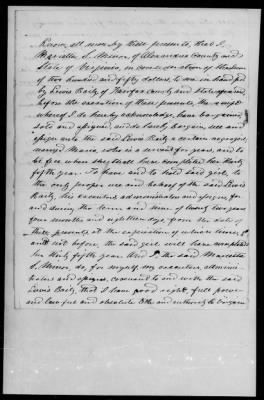 Know all men by these presents, that I,
Marietta S. Minor, of Alexandria County and
State of Virginia, in consideration of the sum
of two hundred and fifty dollars, to me in hand paid
by Lewis Baily, of Fairfax County and State aforesaid,
before the execution of these presents, the receipt
whereof I do hereby acknowledge, have bargained
sold and assigned, and do hereby bargain, sell and
assign unto the said Lewis Baily a certain negro girl
named Maria, who is a servant for years, and to
be free when she shall have completed her thirty
fifth year. To have and to hold said girl, to
the only proper use and behoof of the said Lewis
Baily, his executors administrators and assigns for
and during the term and time of twenty two years
four months and eighteen days from the date of
these presents at the expiration of which time, &
not before, the said girl will have completed
her thirty fifth year. And I, the said Marietta
S. Minor, do, for myself, my executors, adminis-
trators and assigns, covenant to and with the said
Lewis Baily, that I have good right, full power
and lawful and absolute title and authority to bargain